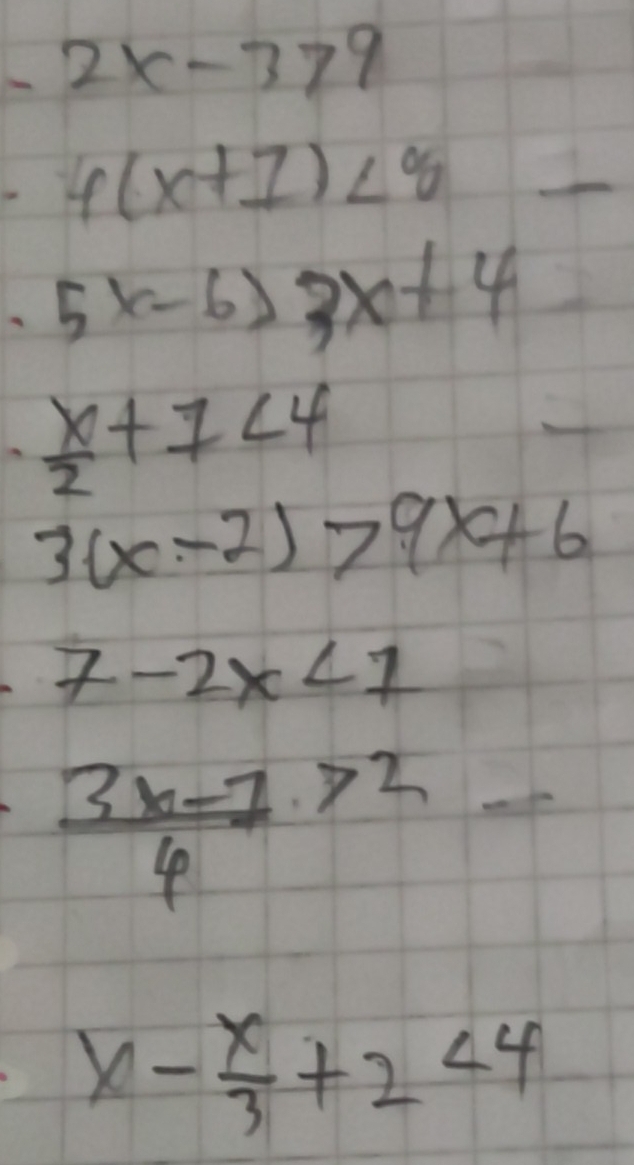 2x-3>9
4(x+1)<8
5x-6>3x+4
x/2+1<4
3(x-2)>9x+6
7-2x<1
(3x-1)/4>2
x-x/3+2<4